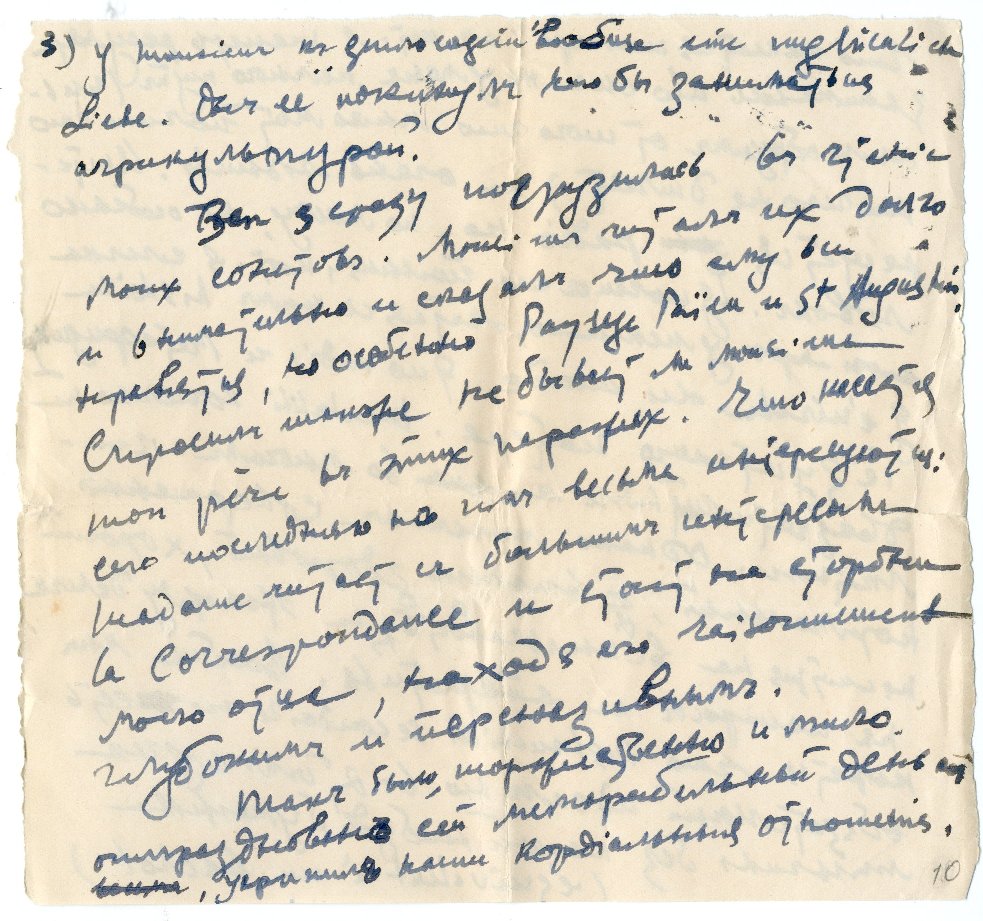 3) У monsieur къ философіи вообще eine unglückliche
Liebe. Онъ её покинулъ чтобы заниматься
агрикультурой.
Всѣ сразу погрузились въ чтеніе
моихъ сонетовъ. Monsieur читалъ ихъ долго
и внимательно и сказалъ что ему все
нравятся, но особенно Paysage Païen и St Augustin.
Спросилъ также не бываетъ ли monsieur
mon père въ этихъ краяхъ. Что касается
его последняго то имъ весьма интересуются:
madame читаетъ съ большимъ интересомъ
la Correspondance и стоитъ на сторонѣ
моего отца, находя его raisonnement
глубокимъ и
Такъ было торжественно и мило
отпразднованъ сей меморабельный день
, укрепилъ наши кордіальныя отношенія.
10